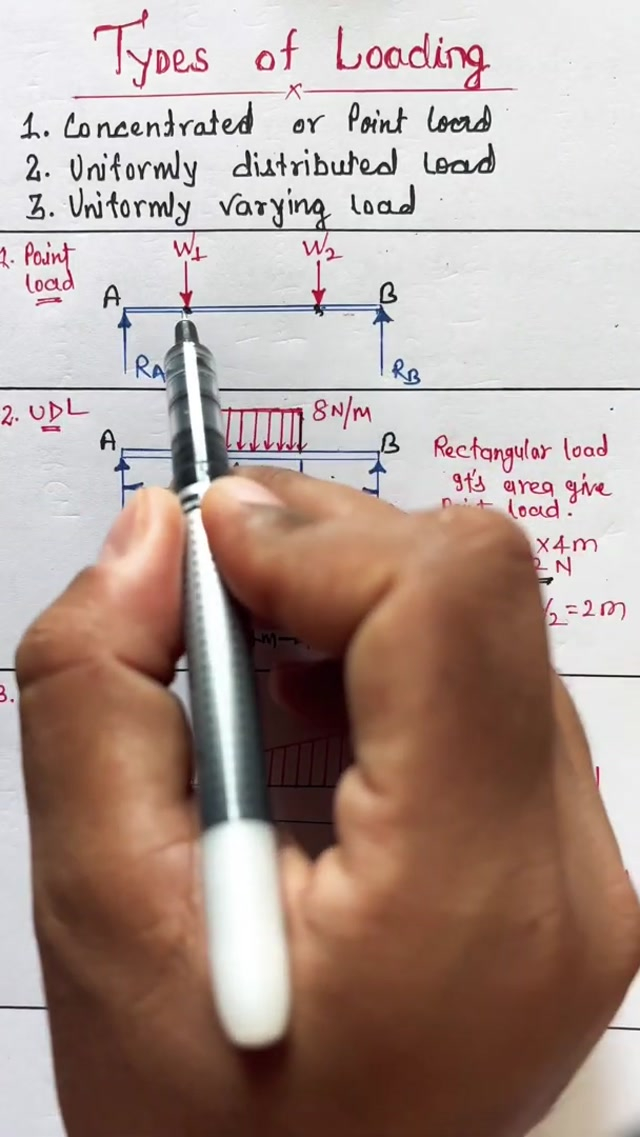 Types of Loading
1. Concentrated or Point load
2. Uniformly distributed load
3. Uniformly Varying load
1. Point
load
W1
W2
A
B
RA
RB
2. UDL
8N/m
A
B
Rectangular load
It's area give
load.
x4m
N
/2 = 2m
m
3.